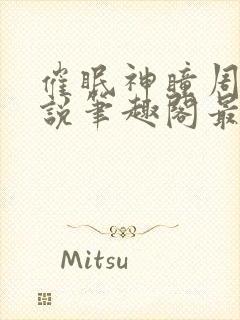 催眠神瞳周
说笔趣阁最
Mitsu